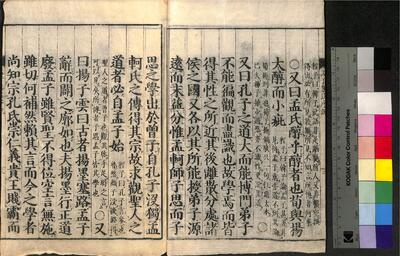 ○又曰孟氏醇乎醇者也荀與揚
大醇而小疵
又曰孔子之道大而能博門弟子
不能徧觀而盡識也故學焉而皆
得其性之所近其後離散分處諸
侯之國又各以其所能授弟子源
遠而末益分惟孟軻師子思而子
思之學出於曾子自孔子沒獨孟
軻氏之傳得其宗故求觀聖人之
道者必自孟子始
聖人之道者曾子也觀其啓手足時之言
可以見矣所傳者子思孟子皆其學也
○又
曰揚子雲曰古者揚墨塞路孟子
辭而闢之廓如也夫揚墨行正道
廢孟子雖賢聖不得位空言無施
雖切何補然賴其言而今之學者
尚知宗孔氏崇仁義貴王賤霸而
KODAK Color Control Patches